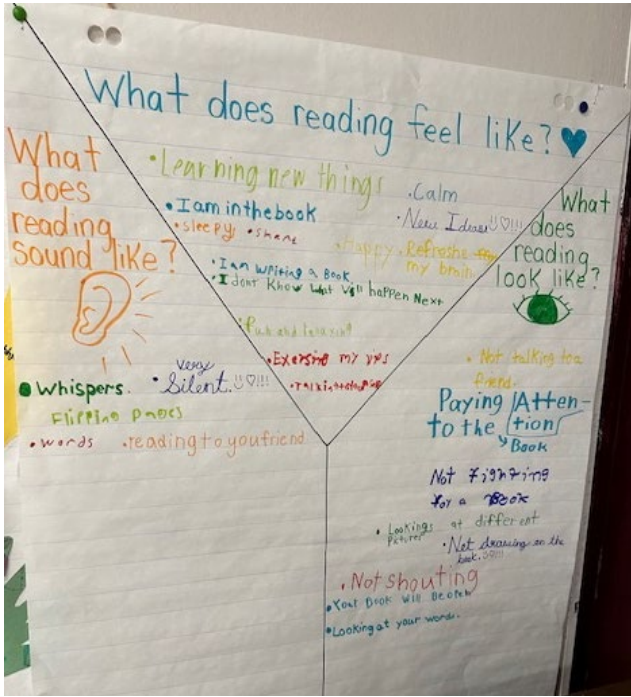 What does reading feel like?
• Learning new things
• Calm
• I am in the book
• New Ideas!!!
• sleepy • share
• Happy • Refreshe
my brain
• I am writing a Book
• I dont Know What Will happen Next
• Fun and relaxing
• Exersise my
What
does
reading
sound like?
• Whispers.
• very
Silent.!!!
Flipping pages
• words • reading to you friend
What
does
reading
look like?
• Not talking to a
friend.
Paying Atten-
to the tion
Book
Not Fighting
for a Book
• Lookings at different
Pictures
• Not drawing on the
book.!!!
• Not shouting
• Your Book Will Be open
• Looking at your words.